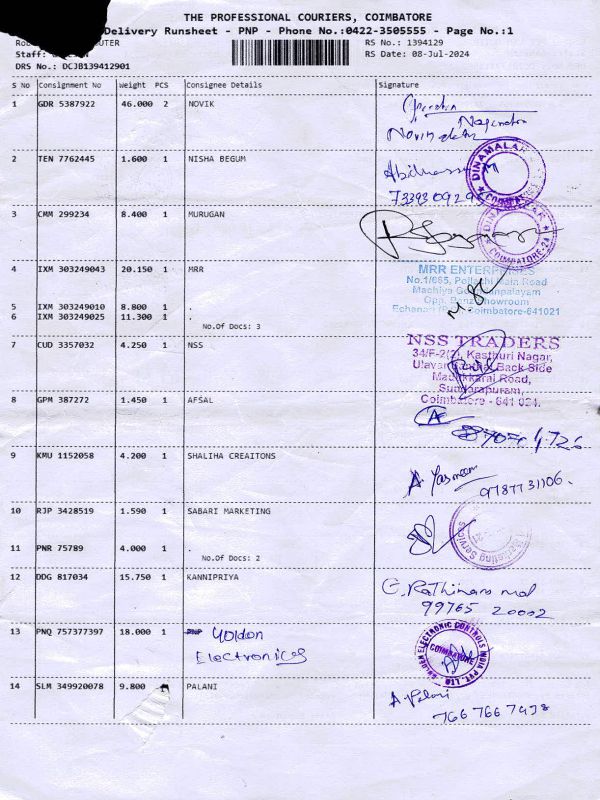 THE PROFESSIONAL COURIERS, COIMBATORE
Delivery Runsheet - PNP - Phone No.:0422-3505555 - Page No.:1
RS No.: 1394129
Staff:
RS Date: 08-Jul-2024
DRS No.: DCJB139412901
S No Consignment No Weight PCS Consignee Details Signature
1 GDR 5387922 46.000 2 NOVIK
2 TEN 7762445 1.600 1 NISHA BEGUM
DINAMALAR
3 CMM 299234 8.400 1 MURUGAN
DINAMALAR COIMBATORE-24
4 IXM 303249043 20.150 1 MRR
MRR ENTERPRISES
No.1/665, Pollachi Main Road
Coimbatore-641021
5 IXM 303249010 8.800 1 .
6 IXM 303249025 11.300 1 .
No.Of Docs: 3
7 CUD 3357032 4.250 1 NSS
NSS TRADERS
34/F-2(2), Kasthuri Nagar,
Back Side
Madukkarai Road,
Sundarapuram,
Coimbatore - 641 024.
8 GPM 387272 1.450 1 AFSAL
9 KMU 1152058 4.200 1 SHALIHA CREAITONS
A Yasmeen
9787731106.
10 RJP 3428519 1.590 1 SABARI MARKETING
11 PNR 75789 4.000 1 .
No.Of Docs: 2
12 DDG 817034 15.750 1 KANNIPRIYA
99765 20002
13 PNQ 757377397 18.000 1 Golden
Electronics
GOLDEN ELECTRONIC CONTROLS INDIA PVT. LTD. COIMBATORE
14 SLM 349920078 9.800 PALANI
A Palani
766 766 7938